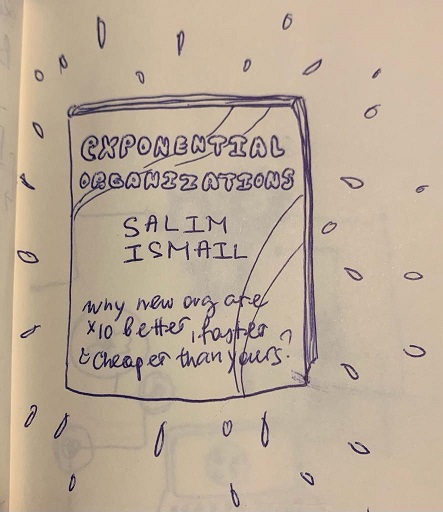 EXPONENTIAL
ORGANIZATIONS
SALIM
ISMAIL
why new org are
x10 better, faster
& cheaper than yours?